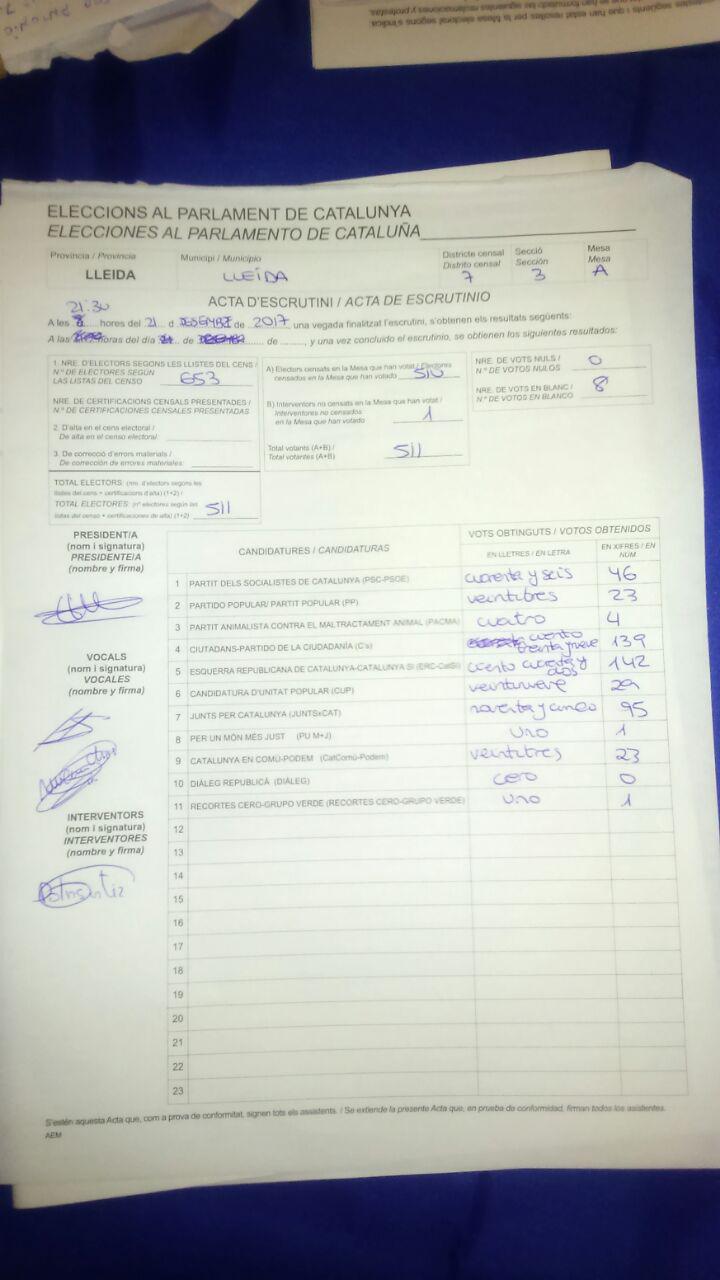 ELECCIONS AL PARLAMENT DE CATALUNYA
ELECCIONES AL PARLAMENTO DE CATALUÑA
Província / Provincia Municipi / Municipio Districte censal Secció Mesa
Distrito censal Sección Mesa
LLEIDA LLEÍDA 7 3 A
ACTA D'ESCRUTINI / ACTA DE ESCRUTINIO
21:30
A les hores del 21 d DESEMBRE de 2017 una vegada finalitzat l'escrutini, s'obtenen els resultats següents:
A las horas del día de de, y una vez concluido el escrutinio, se obtienen los siguientes resultados:
1. NRE. D'ELECTORS SEGONS LES LLISTES DEL CENS /
N.º DE ELECTORES SEGÚN
LAS LISTAS DEL CENSO 653
NRE. DE CERTIFICACIONS CENSALS PRESENTADES /
N.º DE CERTIFICACIONES CENSALES PRESENTADAS
2. D'alta en el cens electoral /
De alta en el censo electoral:
3. De correcció d'errors materials /
De corrección de errores materiales:
TOTAL ELECTORS: (nre. d'electors segons les
llistes del cens + certificacions d'alta) (1+2) /
TOTAL ELECTORES: (nº electores según las
listas del censo + certificaciones de alta) (1+2) 511
A) Electors censats en la Mesa que han votat / Electores
censados en la Mesa que han votado 510
B) Interventors no censats en la Mesa que han votat /
Interventores no censados
en la Mesa que han votado 1
Total votants (A+B) /
Total votantes (A+B) 511
NRE. DE VOTS NULS /
N.º DE VOTOS NULOS 0
NRE. DE VOTS EN BLANC /
N.º DE VOTOS EN BLANCO 8
PRESIDENT/A
(nom i signatura)
PRESIDENTE/A
(nombre y firma)
VOCALS
(nom i signatura)
VOCALES
(nombre y firma)
INTERVENTORS
(nom i signatura)
INTERVENTORES
(nombre y firma)
CANDIDATURES / CANDIDATURAS VOTS OBTINGUTS / VOTOS OBTENIDOS
EN LLETRES / EN LETRA EN XIFRES / EN NÚM
1 PARTIT DELS SOCIALISTES DE CATALUNYA (PSC-PSOE) cuarenta y seis 46
2 PARTIDO POPULAR/ PARTIT POPULAR (PP) veintitres 23
3 PARTIT ANIMALISTA CONTRA EL MALTRACTAMENT ANIMAL (PACMA) cuatro 4
4 CIUTADANS-PARTIDO DE LA CIUDADANÍA (C's) ciento treinta y nueve 139
5 ESQUERRA REPUBLICANA DE CATALUNYA-CATALUNYA SÍ (ERC-CatSí) ciento cuarenta y dos 142
6 CANDIDATURA D'UNITAT POPULAR (CUP) veintinueve 29
7 JUNTS PER CATALUNYA (JUNTSxCAT) noventa y cinco 95
8 PER UN MÓN MÉS JUST (PU M+J) uno 1
9 CATALUNYA EN COMÚ-PODEM (CatComú-Podem) veintitres 23
10 DIÀLEG REPUBLICÀ (DIÀLEG) cero 0
11 RECORTES CERO-GRUPO VERDE (RECORTES CERO-GRUPO VERDE) uno 1
12
13
14
15
16
17
18
19
20
21
22
23
S'estén aquesta Acta que, com a prova de conformitat, signen tots els assistents. / Se extiende la presente Acta que, en prueba de conformidad, firman todos los asistentes.
AEM